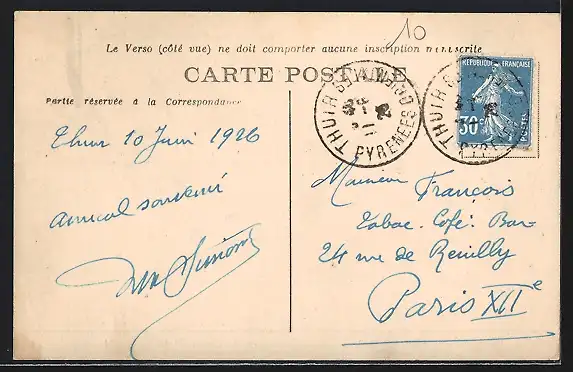 10
Le Verso (côté vue) ne doit comporter aucune inscription manuscrite
CARTE POSTALE
Partie réservée à la Correspondance
THUIR PYRENEES ORIENTALES
THUIR PYRENEES
REPUBLIQUE FRANÇAISE
30c
POSTES
Thuir 10 Juin 1926
Amical souvenir
Monsieur François
Tabac. Café. Bar-
24 rue de Reuilly
Paris XIIe